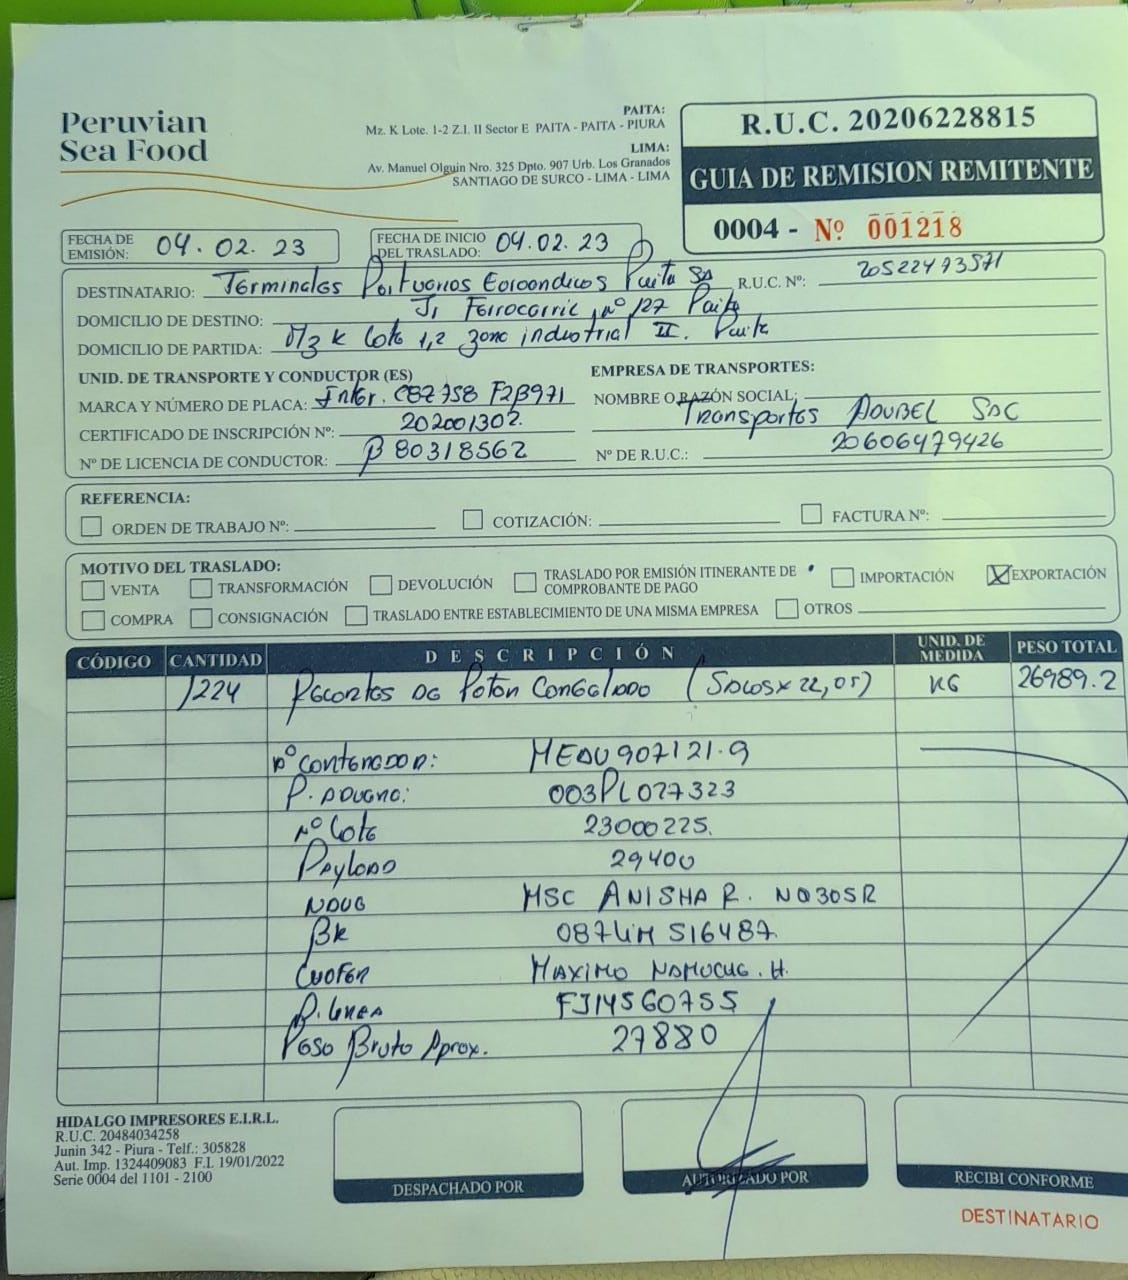 Peruvian
Sea Food
PAITA:
Mz. K Lote. 1-2 Z.I. II Sector E PAITA - PAITA - PIURA
LIMA:
Av. Manuel Olguin Nro. 325 Dpto. 907 Urb. Los Granados
SANTIAGO DE SURCO - LIMA - LIMA
R.U.C. 20206228815
GUIA DE REMISION REMITENTE
0004 - Nº 001218
FECHA DE EMISIÓN: 04.02.23
FECHA DE INICIO DEL TRASLADO: 04.02.23
DESTINATARIO: Terminales Portuarios Euroandinos Paita SA R.U.C. Nº: 20522473571
DOMICILIO DE DESTINO: Jr Ferrocarril nº 127 Paita
DOMICILIO DE PARTIDA: Mz K Lote 1,2 zona industrial II. Paita
UNID. DE TRANSPORTE Y CONDUCTOR (ES)
MARCA Y NÚMERO DE PLACA: Inter. C8Z758 F2B971
CERTIFICADO DE INSCRIPCIÓN Nº: 202001302.
Nº DE LICENCIA DE CONDUCTOR: B80318562
EMPRESA DE TRANSPORTES:
NOMBRE O RAZÓN SOCIAL:
Transportes ADUBEL SAC
Nº DE R.U.C.: 20606479426
REFERENCIA:
ORDEN DE TRABAJO Nº: COTIZACIÓN: FACTURA Nº:
MOTIVO DEL TRASLADO:
VENTA TRANSFORMACIÓN DEVOLUCIÓN TRASLADO POR EMISIÓN ITINERANTE DE COMPROBANTE DE PAGO IMPORTACIÓN X EXPORTACIÓN
COMPRA CONSIGNACIÓN TRASLADO ENTRE ESTABLECIMIENTO DE UNA MISMA EMPRESA OTROS
CÓDIGO CANTIDAD DESCRIPCIÓN UNID. DE MEDIDA PESO TOTAL
1224 Recortes de Poton Congelado (Sacos x 22,05) KG 26989.2
nº contenedor: MEDU907121-9
P. Aduana: 003PL027323
Nº Lote 23000225.
Payload 29400
Nave MSC ANISHA R. NQ305R
BK 087LIM516487
Chofer MAXIMO NAMUCHE. H.
P. Linea FJ14560755
Peso Bruto Aprox. 27880
HIDALGO IMPRESORES E.I.R.L.
R.U.C. 20484034258
Junin 342 - Piura - Telf.: 305828
Aut. Imp. 1324409083 F.I. 19/01/2022
Serie 0004 del 1101 - 2100
DESPACHADO POR
AUTORIZADO POR
RECIBI CONFORME
DESTINATARIO